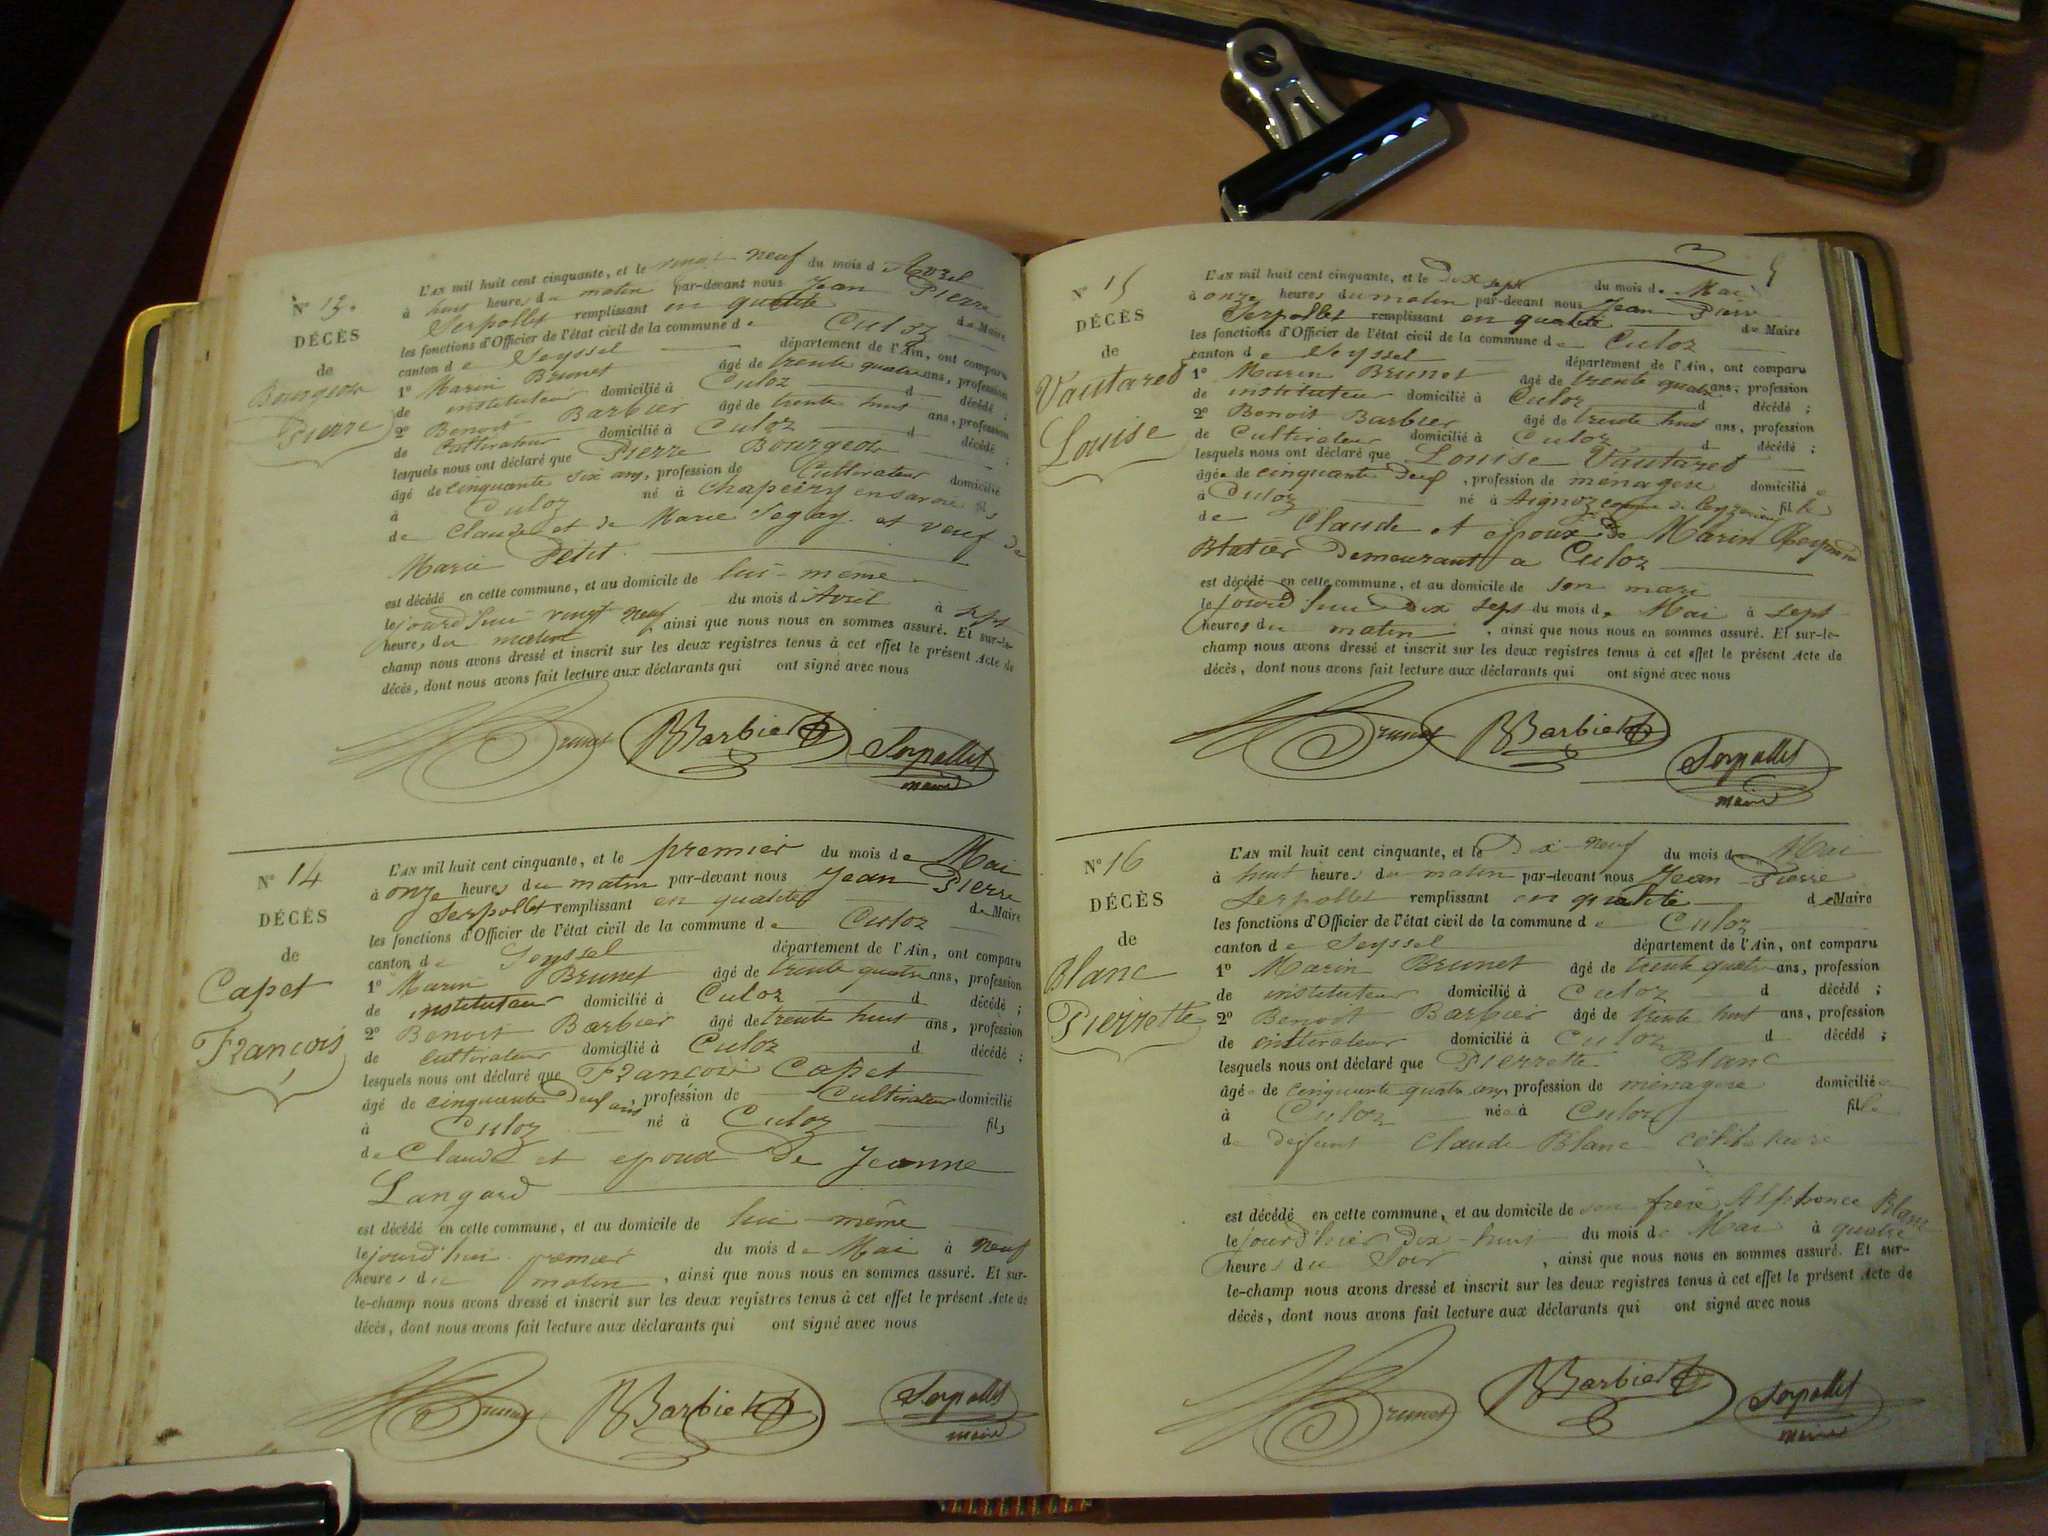 N° 13.
DÉCÈS
de
Bourgeois
Pierre
L'AN mil huit cent cinquante, et le vingt neuf du mois d'Avril
à huit heures du matin par-devant nous Jean Pierre
Serpollet remplissant en qualité de Maire
les fonctions d'Officier de l'état civil de la commune de Culoz
canton de Seyssel département de l'Ain, ont comparu
1° Marin Brunet âgé de trente quatre ans, profession
de instituteur domicilié à Culoz d décédé ;
2° Benoit Barbier âgé de trente huit ans, profession
de Cultivateur domicilié à Culoz d décédé ;
lesquels nous ont déclaré que Pierre Bourgeois
âgé de cinquante six ans, profession de Cultivateur domicilié
à Culoz né à Chapeiry en savoie fils
de Claude et de Marie et veuf de
Marie Petit
est décédé en cette commune, et au domicile de lui-même
le jourd'hui vingt neuf du mois d'Avril à sept
heures du matin, ainsi que nous nous en sommes assuré. Et sur-le-
champ nous avons dressé et inscrit sur les deux registres tenus à cet effet le présent Acte de
décès, dont nous avons fait lecture aux déclarants qui ont signé avec nous
Brunet BBarbier Serpollet
maire
N° 14
DÉCÈS
de
Capet
François
L'AN mil huit cent cinquante, et le premier du mois de Mai
à onze heures du matin par-devant nous Jean Pierre
Serpollet remplissant en qualité de Maire
les fonctions d'Officier de l'état civil de la commune de Culoz
canton de Seyssel département de l'Ain, ont comparu
1° Marin Brunet âgé de trente quatre ans, profession
de instituteur domicilié à Culoz d décédé ;
2° Benoit Barbier âgé de trente huit ans, profession
de cultivateur domicilié à Culoz d décédé ;
lesquels nous ont déclaré que François Capet
âgé de cinquante deux ans, profession de Cultivateur domicilié
à Culoz né à Culoz fils
de Claude et epoux De Jeanne
Langard
est décédé en cette commune, et au domicile de lui-même
le jourd'hui premier du mois de Mai à neuf
heures du matin, ainsi que nous nous en sommes assuré. Et sur-
le-champ nous avons dressé et inscrit sur les deux registres tenus à cet effet le présent Acte de
décès, dont nous avons fait lecture aux déclarants qui ont signé avec nous
Brunet BBarbier Serpollet
maire
N° 15
DÉCÈS
de
Vautaret
Louise
L'AN mil huit cent cinquante, et le Dix sept du mois de Mai
à onze heures du matin par-devant nous Jean Pierre
Serpollet remplissant en qualité de Maire
les fonctions d'Officier de l'état civil de la commune de Culoz
canton de Seyssel département de l'Ain, ont comparu
1° Marin Brunet âgé de trente quatre ans, profession
de instituteur domicilié à Culoz d décédé ;
2° Benoit Barbier âgé de trente huit ans, profession
de Cultivateur domicilié à Culoz d décédé ;
lesquels nous ont déclaré que Louise Vautaret
âgée de cinquante deux, profession de menagere domicilié
à Culoz né à Aignoz fille
de Claude et epoux De Marin
Blatier Demeurant a Culoz
est décédé en cette commune, et au domicile de son mari
le jourd'hui Dix sept du mois de Mai à sept
heures du matin, ainsi que nous nous en sommes assuré. Et sur-le-
champ nous avons dressé et inscrit sur les deux registres tenus à cet effet le présent Acte de
décès, dont nous avons fait lecture aux déclarants qui ont signé avec nous
Brunet BBarbier Serpollet
maire
N° 16
DÉCÈS
de
Blanc
Pierrette
L'AN mil huit cent cinquante, et le Dix-neuf du mois de Mai
à huit heures du matin par-devant nous Jean-Pierre
Serpollet remplissant en qualité de Maire
les fonctions d'Officier de l'état civil de la commune de Culoz
canton de Seyssel département de l'Ain, ont comparu
1° Marin Brunet âgé de trente quatre ans, profession
de instituteur domicilié à Culoz d décédé ;
2° Benoit Barbier âgé de trente huit ans, profession
de cultivateur domicilié à Culoz d décédé ;
lesquels nous ont déclaré que Pierrette Blanc
âgée de cinquante quatre ans, profession de ménagere domiciliée
à Culoz née à Culoz fille
de defunt Claude Blanc célibataire
est décédé en cette commune, et au domicile de son frère Alphonce Blanc
le jourd'hier dix-huit du mois de Mai à quatre
heures du Soir, ainsi que nous nous en sommes assuré. Et sur-
le-champ nous avons dressé et inscrit sur les deux registres tenus à cet effet le présent Acte de
décès, dont nous avons fait lecture aux déclarants qui ont signé avec nous
Brunet BBarbier Serpollet
maire